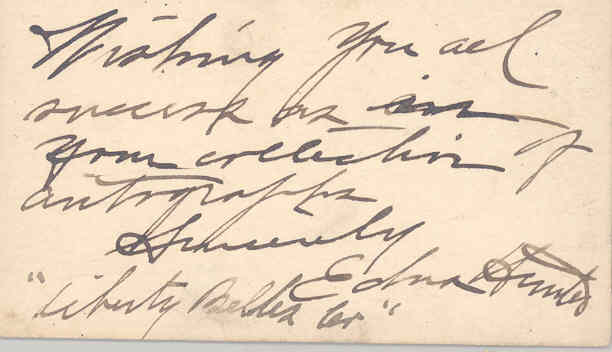 Wishing You all
success as in
your collection of
autographs
Sincerely
Edna Hunter
"Liberty Belles Co"